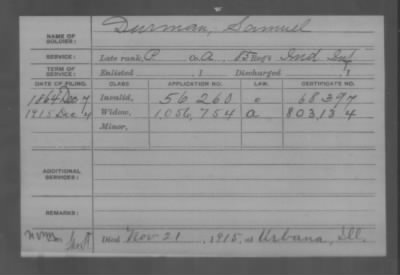 Durman, Samuel
NAME OF SOLDIER:
SERVICE: Late rank, P. Co. A, 85 Reg't Ind Inf
TERM OF SERVICE: Enlisted , 1 Discharged , 1
DATE OF FILING. CLASS APPLICATION NO. LAW. CERTIFICATE NO.
1864 Dec 7 Invalid, 56260 68397
1915 Dec 4 Widow, 1,056,754 a 803,134
Minor,
ADDITIONAL SERVICES:
REMARKS:
Died Nov 21, 1915, at Urbana, Ill.